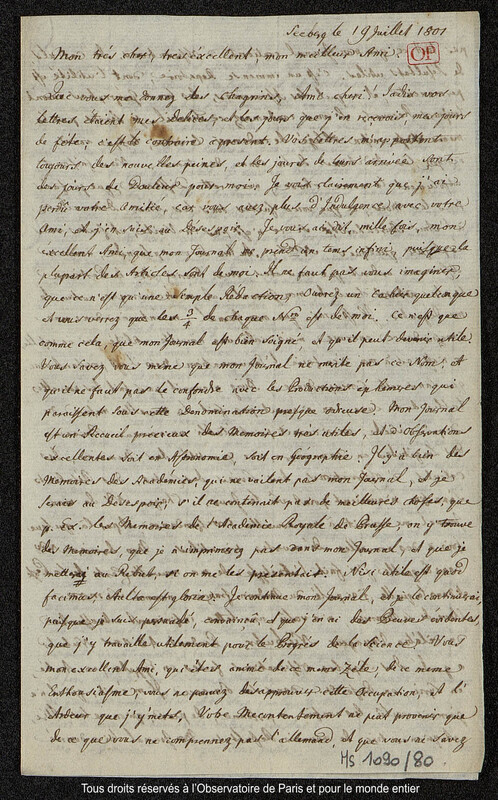 Seeberg le 19 Juillet 1801
Mon très cher, très excellent, mon meilleur Ami.
OP
Que vous me donnez des Chagrins, Ami cheri! Jadis vos
lettres, étaient mes Delices, et les jours que j'en recevois mes jours
de fête; c'est le contraire apresent. Vos lettres m'apportent
toujours des nouvelles peines, et les jours de leurs arrivée sont
des jours de Douleur pour moi. Je vois clairement que j'ai
perdu votre Amitiée, car vous avez plus d'Indulgence avec votre
Ami, et j'en suis au Desespoir. Je vous ai dit, mille fois, mon
excellent Ami, que mon Journal me prend un tems infini, puisque la
plupart des Articles sont de moi. Il ne faut pas vous imaginer,
que ce n'est qu'une simple Rédaction; Ouvrez un Cahier quelconque
et vous verrez que les 3/4 de chaque N.ro est de moi. Ce n'est que
comme cela, que mon Journal est bien soigné et qu'il peut devenir utile.
Vous savez vous même que mon Journal ne merite pas ce Nom, et
qu'il ne faut pas le confondre avec les Productions éphémeres qui
paroissent sous cette Denomination presque odieuse. Mon Journal
est un Recueil precieux des Memoires très utiles, et d'Observations
excellentes soit en Astronomie, soit en Geographie. Il y a bien des
Memoires des Academies, qui ne valent pas mon Journal, et je
serais au Désespoir, s'il ne contenait pas de meilleures choses, que
p. ex. les Memoires de l'Academie Royale de Prusse, on y trouve
des Memoires, que je n'imprimerai pas dans mon Journal, et que je
metterai au Rebut, si on me les presentait. Nisi utile est quod
facimus, stulta est gloria. Je continue mon Journal, et je le continuerai,
puisque je suis persuadé, convaincu, et que j'en ai des Preuves évidentes,
que j'y travaille utilement pour le Progrés de la Science. Vous
mon excellent Ami, qui êtes animé de ce meme Zéle, de ce meme
Enthousiasme, vous ne pouvez désapprouver cette Occupation, et l'
Ardeur que j'y mets. Votre Mecontentement ne peut provenir que
de ce que vous ne comprennez pas l'allemand, et que vous ne savez
Ms 1090/80.
Tous droits réservés à l'Observatoire de Paris et pour le monde entier